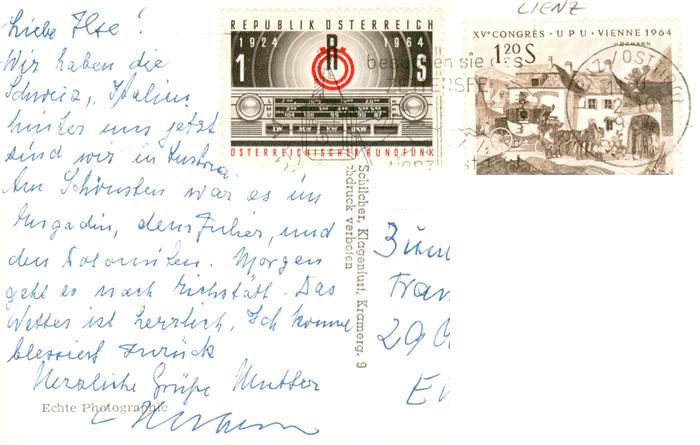 LIENZ
Liebe Ilse!
Wir haben die
Schweiz, Italien
hinter uns jetzt
sind wir in Austria.
Am Schönsten war es im
Engadin, dem Julier, und
den Dolomiten. Morgen
geht es nach Eichstätt. Das
Wetter ist herrlich. Ich komme
blessiert zurück
Herzliche Grüße Mutter
REPUBLIK ÖSTERREICH
1924 1964
R
1 S
LW MW KW UKW
ÖSTERREICHISCHER RUNDFUNK
XV CONGRÈS · UPU · VIENNE 1964
1.20 S
besuchen sie
OSTTIROL
Schilcher, Klagenfurt, Kramerg. 9
hdruck verboten
Fran
29
Echte Photographie